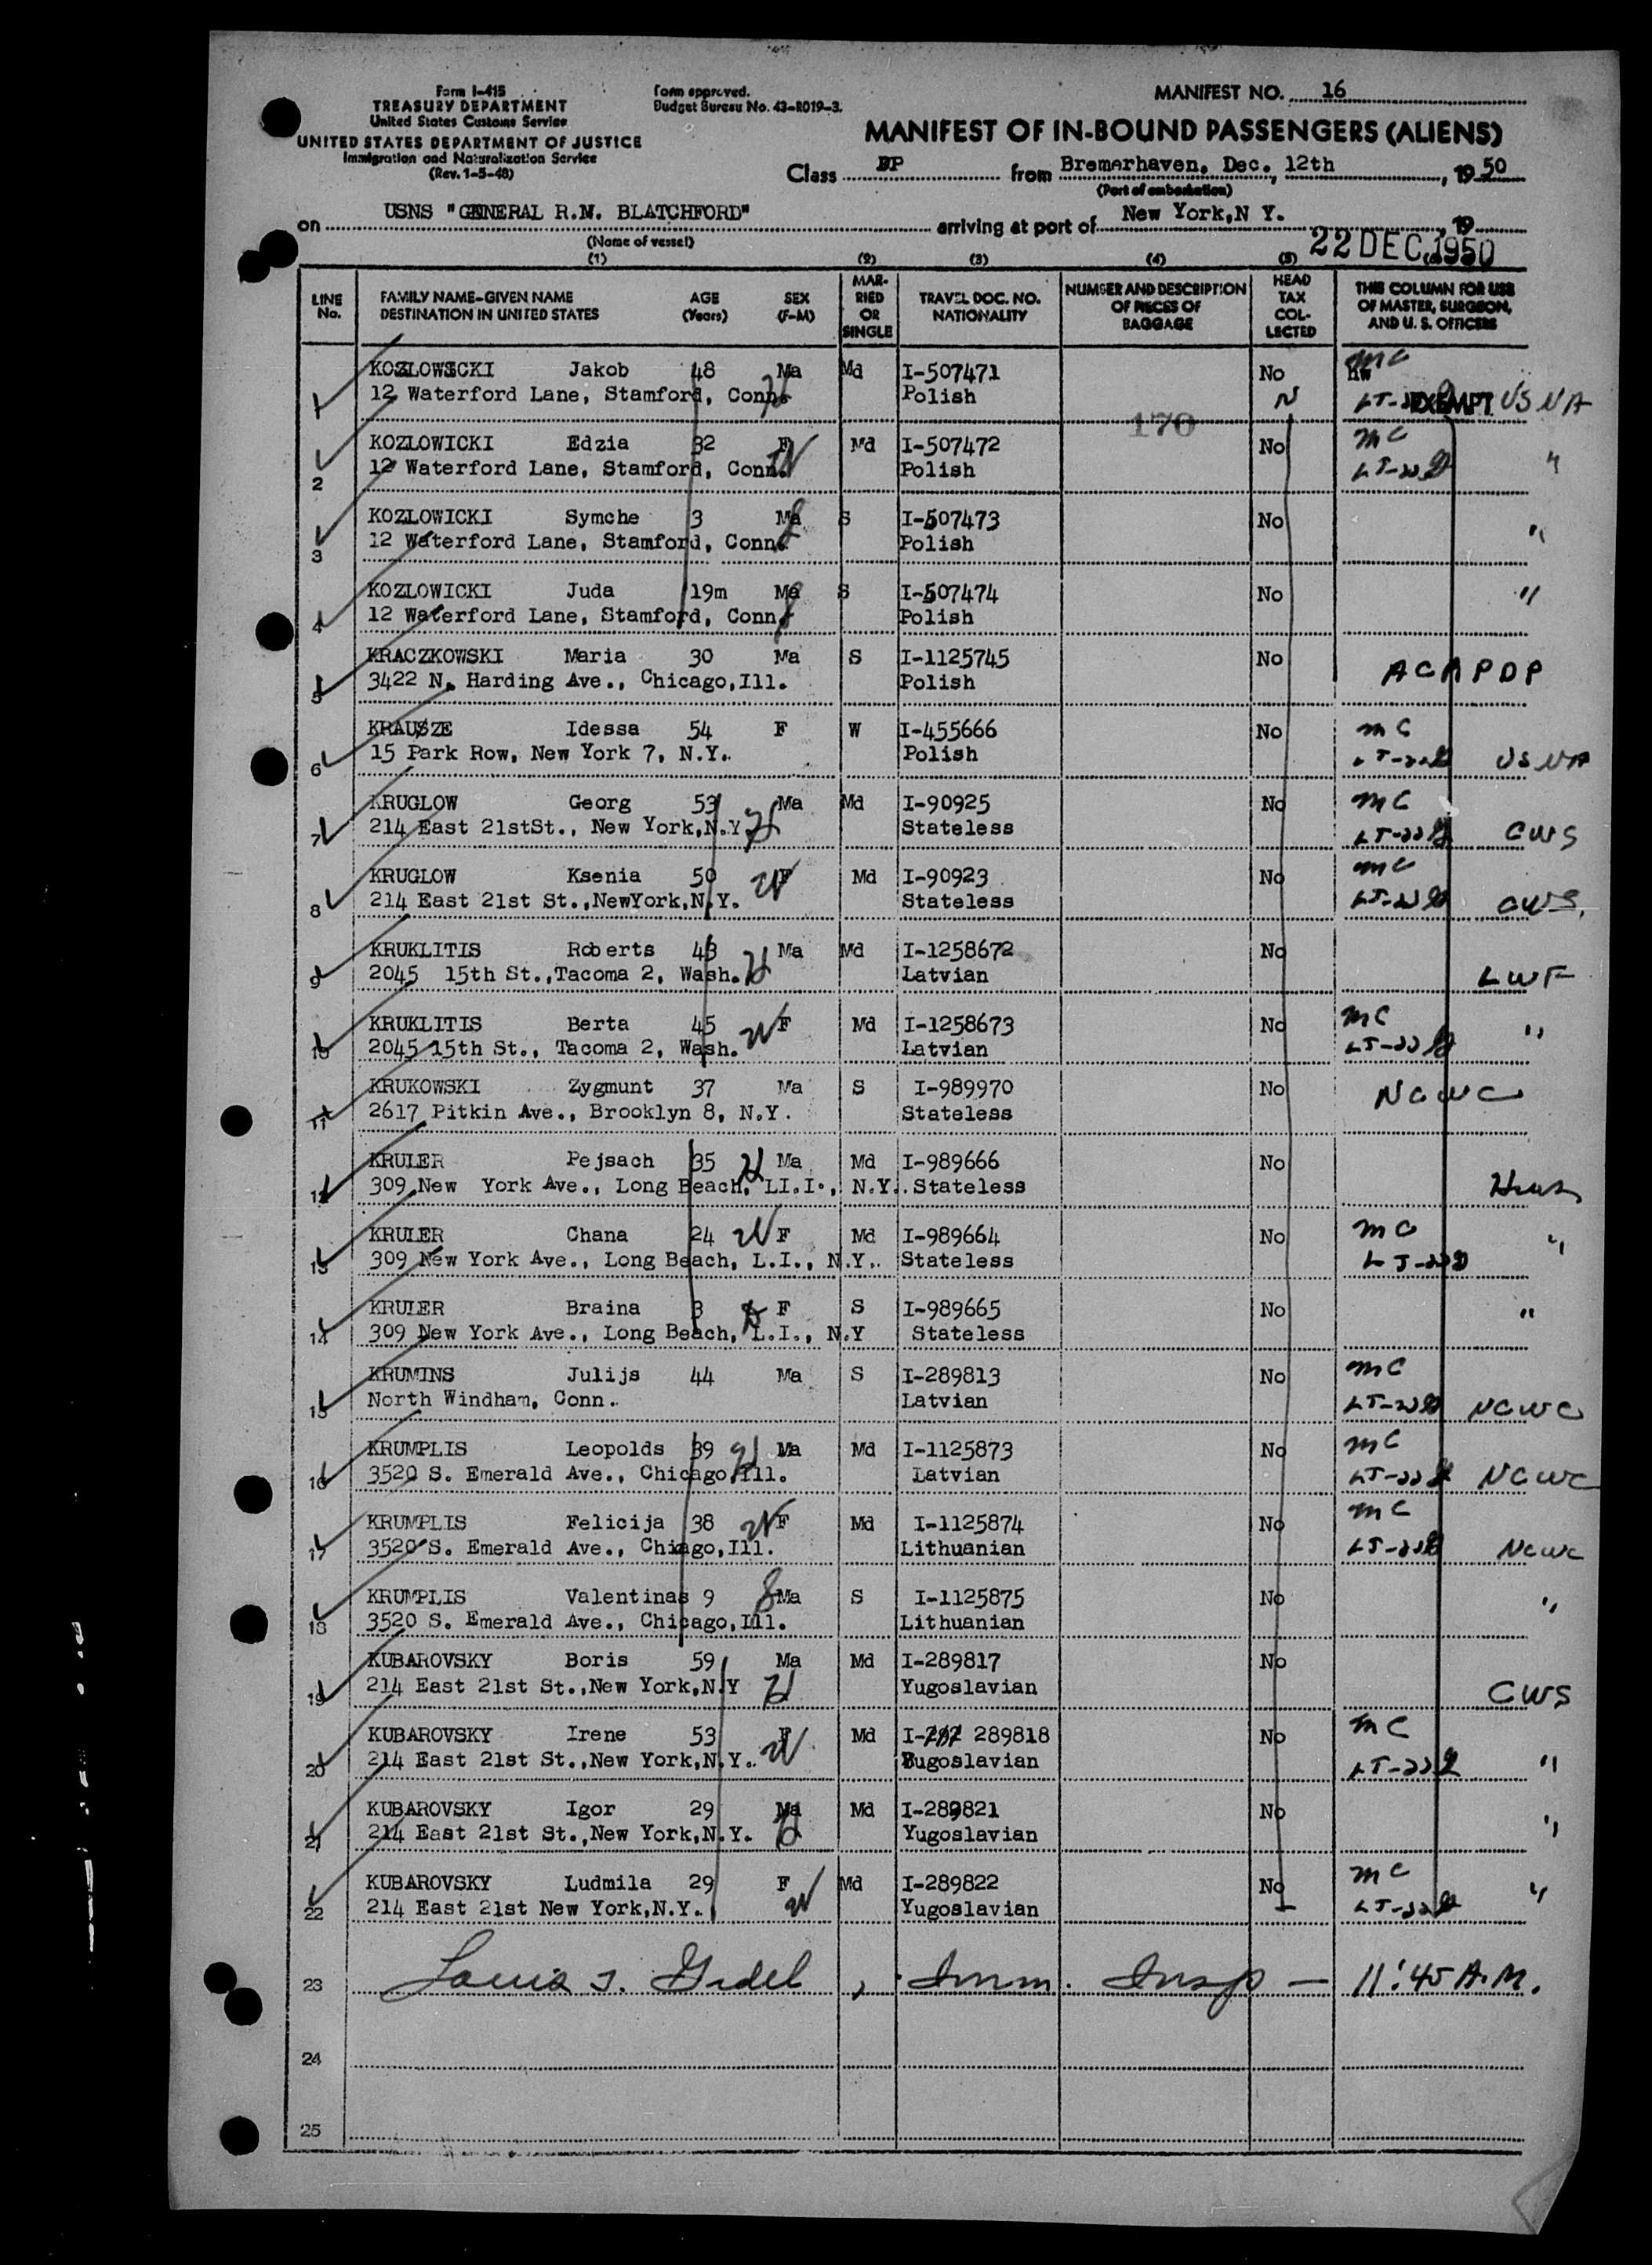 Form I-415
TREASURY DEPARTMENT
United States Customs Service
UNITED STATES DEPARTMENT OF JUSTICE
Immigration and Naturalization Service
(Rev. 1-5-48)
Form approved.
Budget Bureau No. 43-R019-3.
MANIFEST NO. 16
MANIFEST OF IN-BOUND PASSENGERS (ALIENS)
Class DP from Bremerhaven, Dec. 12th, 1950
(Port of embarkation)
on USNS "GENERAL R.M. BLATCHFORD" arriving at port of New York,N Y. , 19
(Name of vessel)
22 DEC 1950
(1) (2) (3) (4) (5)
LINE No. FAMILY NAME-GIVEN NAME DESTINATION IN UNITED STATES AGE (Years) SEX (F-M) MARRIED OR SINGLE TRAVEL DOC. NO. NATIONALITY NUMBER AND DESCRIPTION OF PIECES OF BAGGAGE HEAD TAX COLLECTED THIS COLUMN FOR USE OF MASTER, SURGEON, AND U. S. OFFICERS
1 KOZLOWICKI Jakob 48 Ma Md I-507471 No MC
12 Waterford Lane, Stamford, Conn. Polish N EXEMPT USNA
170
2 KOZLOWICKI Edzia 32 F Md I-507472 No MC
12 Waterford Lane, Stamford, Conn. Polish "
3 KOZLOWICKI Symche 3 Ma S I-507473 No
12 Waterford Lane, Stamford, Conn. Polish "
4 KOZLOWICKI Juda 19m Ma S I-507474 No "
12 Waterford Lane, Stamford, Conn. Polish
5 KRACZKOWSKI Maria 30 Ma S I-1125745 No
3422 N. Harding Ave., Chicago,Ill. Polish ACAPDP
6 KRAUZE Idessa 54 F W I-455666 No MC
15 Park Row, New York 7, N.Y. Polish USNA
7 KRUGLOW Georg 53 Ma Md I-90925 No MC
214 East 21stSt., New York,N.Y. H Stateless CWS
8 KRUGLOW Ksenia 50 F Md I-90923 No MC
214 East 21st St.,NewYork,N.Y. W Stateless CWS.
9 KRUKLITIS Roberts 43 Ma Md I-1258672 No
2045 15th St.,Tacoma 2, Wash. H Latvian LWF
10 KRUKLITIS Berta 45 W F Md I-1258673 No MC
2045 15th St., Tacoma 2, Wash. Latvian "
11 KRUKOWSKI Zygmunt 37 Ma S I-989970 No NCWC
2617 Pitkin Ave., Brooklyn 8, N.Y. Stateless
12 KRULER Pejsach 35 H Ma Md I-989666 No
309 New York Ave., Long Beach, LI.I., N.Y. Stateless
13 KRULER Chana 24 W F Md I-989664 No MC
309 New York Ave., Long Beach, L.I., N.Y. Stateless "
14 KRULER Braina 3 F S I-989665 No "
309 New York Ave., Long Beach, L.I., N.Y Stateless
15 KRUMINS Julijs 44 Ma S I-289813 No MC
North Windham, Conn. Latvian NCWC
16 KRUMPLIS Leopolds 39 H Ma Md I-1125873 No MC
3520 S. Emerald Ave., Chicago,Ill. Latvian NCWC
17 KRUMPLIS Felicija 38 W F Md I-1125874 No MC
3520 S. Emerald Ave., Chiago,Ill. Lithuanian NCWC
18 KRUMPLIS Valentinas 9 Ma S I-1125875 No "
3520 S. Emerald Ave., Chicago,Ill. Lithuanian
19 KUBAROVSKY Boris 59 Ma Md I-289817 No
214 East 21st St.,New York,N.Y H Yugoslavian CWS
20 KUBAROVSKY Irene 53 F Md I-289818 No MC
214 East 21st St.,New York,N.Y. W Yugoslavian "
21 KUBAROVSKY Igor 29 Ma Md I-289821 No
214 East 21st St.,New York,N.Y. H Yugoslavian "
22 KUBAROVSKY Ludmila 29 F Md I-289822 No MC
214 East 21st New York,N.Y. W Yugoslavian "
23 Louis , Imm. Insp — 11:45 A.M.
24
25